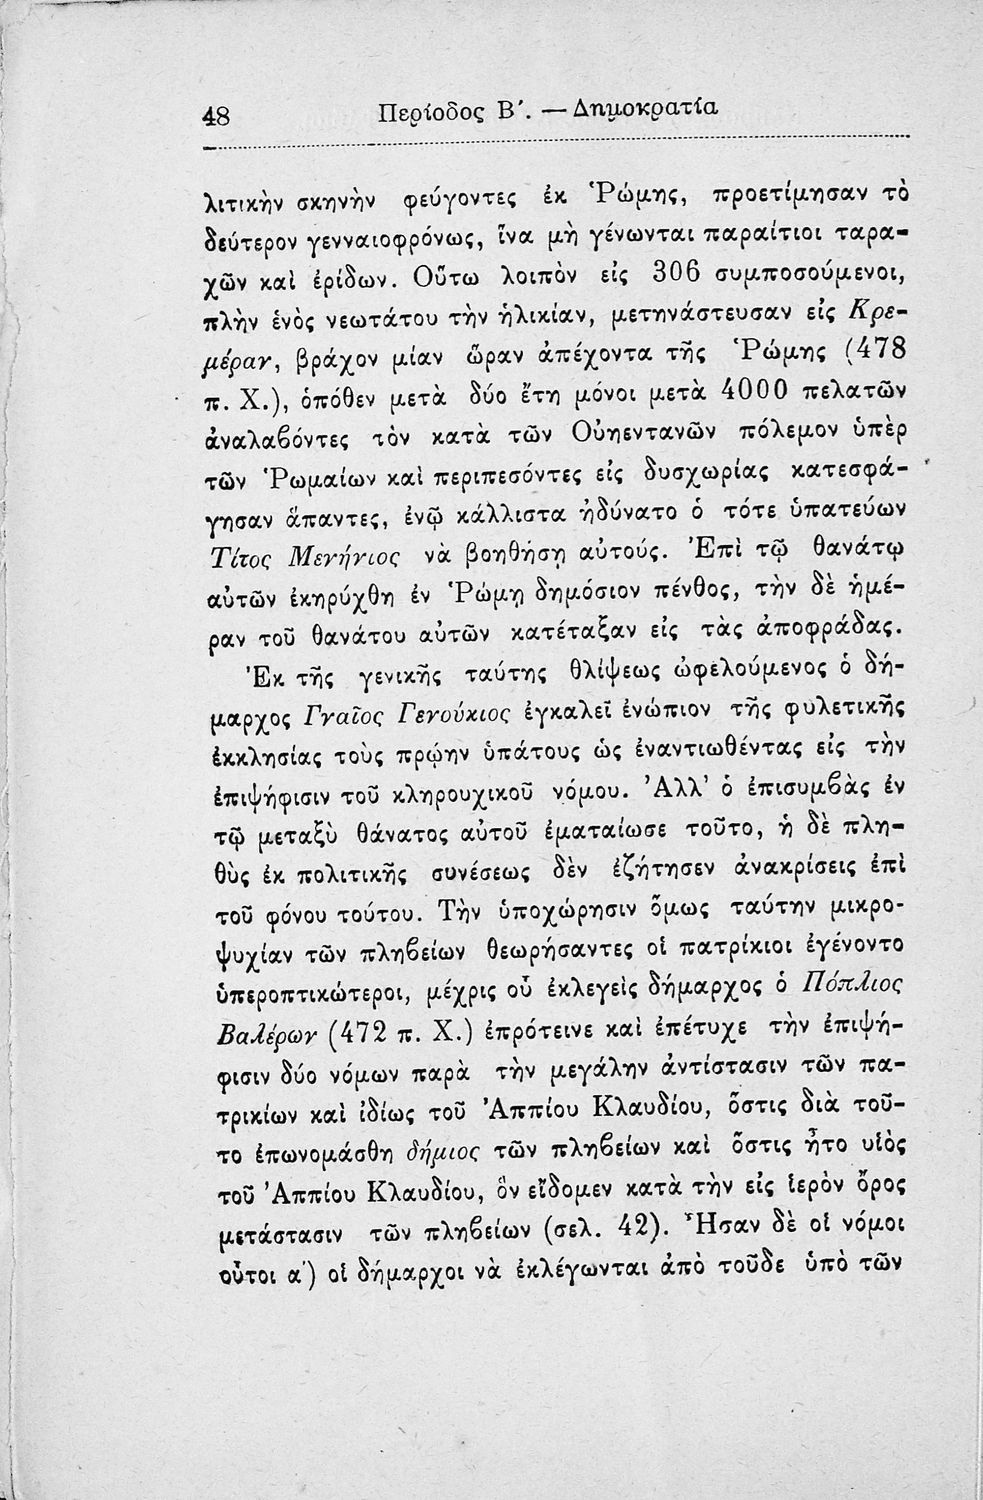 48 Περίοδος Β΄. — Δημοκρατία
λιτικὴν σκηνὴν φεύγοντες ἐκ Ῥώμης, προετίμησαν τὸ
δεύτερον γενναιοφρόνως, ἵνα μὴ γένωνται παραίτιοι ταρα-
χῶν καὶ ἐρίδων. Οὕτω λοιπὸν εἰς 306 συμποσούμενοι,
πλὴν ἑνὸς νεωτάτου τὴν ἡλικίαν, μετηνάστευσαν εἰς Κρε-
μέραν, βράχον μίαν ὥραν ἀπέχοντα τῆς Ῥώμης (478
π. Χ.), ὁπόθεν μετὰ δύο ἔτη μόνοι μετὰ 4000 πελατῶν
ἀναλαβόντες τὸν κατὰ τῶν Οὐηεντανῶν πόλεμον ὑπὲρ
τῶν Ῥωμαίων καὶ περιπεσόντες εἰς δυσχωρίας κατεσφά-
γησαν ἅπαντες, ἐνῷ κάλλιστα ἠδύνατο ὁ τότε ὑπατεύων
Τίτος Μενήνιος νὰ βοηθήσῃ αὐτούς. Ἐπὶ τῷ θανάτῳ
αὐτῶν ἐκηρύχθη ἐν Ῥώμῃ δημόσιον πένθος, τὴν δὲ ἡμέ-
ραν τοῦ θανάτου αὐτῶν κατέταξαν εἰς τὰς ἀποφράδας.
Ἐκ τῆς γενικῆς ταύτης θλίψεως ὠφελούμενος ὁ δή-
μαρχος Γναῖος Γενούκιος ἐγκαλεῖ ἐνώπιον τῆς φυλετικῆς
ἐκκλησίας τοὺς πρῴην ὑπάτους ὡς ἐναντιωθέντας εἰς τὴν
ἐπιψήφισιν τοῦ κληρουχικοῦ νόμου. Ἀλλ’ ὁ ἐπισυμβὰς ἐν
τῷ μεταξὺ θάνατος αὐτοῦ ἐματαίωσε τοῦτο, ἡ δὲ πλη-
θὺς ἐκ πολιτικῆς συνέσεως δὲν ἐζήτησεν ἀνακρίσεις ἐπὶ
τοῦ φόνου τούτου. Τὴν ὑποχώρησιν ὅμως ταύτην μικρο-
ψυχίαν τῶν πληβείων θεωρήσαντες οἱ πατρίκιοι ἐγένοντο
ὑπεροπτικώτεροι, μέχρις οὗ ἐκλεγεὶς δήμαρχος ὁ Πόπλιος
Βαλέρων (472 π. Χ.) ἐπρότεινε καὶ ἐπέτυχε τὴν ἐπιψή-
φισιν δύο νόμων παρὰ τὴν μεγάλην ἀντίστασιν τῶν πα-
τρικίων καὶ ἰδίως τοῦ Ἀππίου Κλαυδίου, ὅστις διὰ τοῦ-
το ἐπωνομάσθη δήμιος τῶν πληβείων καὶ ὅστις ἦτο υἱὸς
τοῦ Ἀππίου Κλαυδίου, ὃν εἴδομεν κατὰ τὴν εἰς ἱερὸν ὄρος
μετάστασιν τῶν πληβείων (σελ. 42). Ἦσαν δὲ οἱ νόμοι
οὗτοι α΄) οἱ δήμαρχοι νὰ ἐκλέγωνται ἀπὸ τοῦδε ὑπὸ τῶν